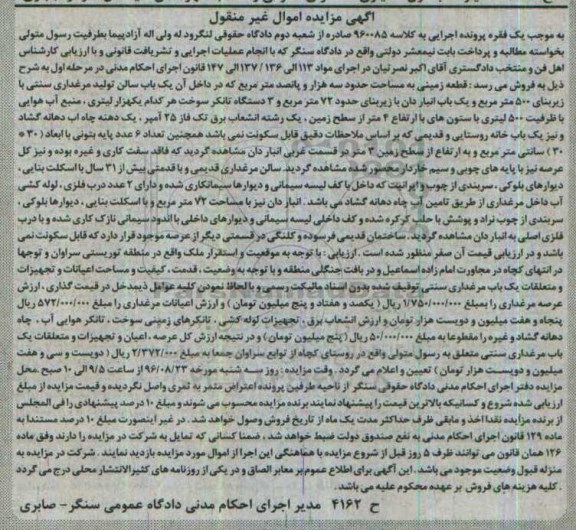 آگهی مزایده اموال غیر منقول
به موجب یک فقره پرونده اجرایی به کلاسه ۹۶۰۰۸۵ صادره از شعبه دوم دادگاه حقوقی لنگرود له ولی اله آزادپیما بطرفیت رسول متولی
بخواسته مطالبه و پرداخت بابت نیمعشر دولتی واقع در دادگاه سنگر که با انجام عملیات اجرایی و تشریفات قانونی و با ارزیابی کارشناس
اهل فن و منتخب دادگستری آقای اکبر نصرتیان در اجرای مواد ۱۱۳ الی ۱۳۶ / ۱۳۷ الی ۱۴۷ قانون اجرای احکام مدنی در مرحله اول به شرح
ذیل به فروش می رسد : قطعه زمینی به مساحت حدود سه هزار و پانصد متر مربع که در داخل آن یک باب سالن تولید مرغداری سنتی با
زیربنای ۵۰۰ متر مربع و یک باب انبار دان با زیربنای حدود ۷۲ متر مربع و ۳ دستگاه تانکر سوخت هر کدام یکهزار لیتری ، منبع آب هوایی
با ظرفیت ۵۰۰ لیتری با ستون های با ارتفاع ۴ متر از سطح زمین ، یک رشته انشعاب برق تک فاز ۲۵ آمپر ، یک دهنه چاه آب دهانه گشاد
و نیز یک باب خانه روستایی و قدیمی که بر اساس ملاحظات دقیق قابل سکونت نمی باشد همچنین تعداد ۶ عدد پایه بتونی با ابعاد ( ۳۰ *
۳۰ ) سانتی متر مربع و به ارتفاع از سطح زمین ۳ متر در قسمت غربی انبار دان مشاهده گردید که فاقد سقف کاری و غیره بوده و نیز کل
عرصه نیز با پایه های چوبی و سیم خاردار محصور شده مشاهده گردید. سالن مرغداری قدیمی و با قدمتی بیش از ۳۱ سال با اسکلت بنایی ،
دیوارهای بلوکی ، سربندی از چوب و ایرانیت که داخل با کف لیسه سیمانی و دیوارها سیمانکاری شده و دارای ۲ عدد درب فلزی ، لوله کشی
آب داخل مرغداری از طریق تامین آب چاه دهانه گشاد می باشد . انبار دان نیز با مساحت ۷۲ متر مربع و با اسکلت بنایی ، دیوارها بلوکی ،
سربندی از چوب نراد و پوشش با حلب کرکره شده و کف داخلی لیسه سیمانی و دیوارهای داخلی با اندود سیمانی نازک کاری شده و با درب
فلزی اصلی به انبار دان مشاهده گردید . ساختمان قدیمی فرسوده و کلنگی در قسمتی دیگر از عرصه موجود قرار دارد که قابل سکونت نمی
باشد و در ارزیابی قیمت آن صفر منظور شده است . ارزیابی : با توجه به موقعیت و استقرار ملک واقع در منطقه توریستی سراوان و توجها
در انتهای کچاه در مجاورت امام زاده اسماعیل و در بافت جنگلی منطقه و با توجه به وضعیت ، قدمت ، کیفیت و مساحت اعیانات و تجهیزات
و متعلقات یک باب مرغداری سنتی توقیف شده بدون اسناد مالکیت رسمی و بالحاظ نمودن کلیه عوامل ذیمدخل در قیمت گذاری ، ارزش
عرصه مرغداری را بمبلغ ۱/۷۵۰/۰۰۰/۰۰۰ ریال ( یکصد و هفتاد و پنج میلیون تومان ) و ارزش اعیانات مرغداری را مبلغ ۵۷۲/۰۰۰/۰۰۰ ریال
پنجاه و هفت میلیون و دویست هزار تومان و ارزش انشعاب برق ، تجهیزات لوله کشی ، تانکرهای زمینی سوخت ، تانکر هوایی آب ، چاه
دهانه گشاد و غیره را مقطوعا به مبلغ ۵۰/۰۰۰/۰۰۰ ریال ( پنج میلیون تومان ) و در نتیجه ارزش کل عرصه ، اعیان و تجهیزات و متعلقات یک
باب مرغداری سنتی متعلق به رسول متولی واقع در روستای کچاه از توابع سراوان جمعا به مبلغ ۲/۳۷۲/۰۰۰ ریال ( دویست و سی و هفت
میلیون و دویست هزار تومان ) تعیین و اعلام می گردد . وقت مزایده : روز سه شنبه مورخه ۹۶/۰۸/۲۳ از ساعت ۹/۵ الی ۱۰ صبح .محل
مزایده دفتر اجرای احکام مدنی دادگاه حقوقی سنگر از ناحیه طرفین پرونده اعتراض مثمر به ثمری واصل نگردیده و قیمت مزایده از مبلغ
ارزیابی شده شروع و کسانیکه بالاترین قیمت را پیشنهاد نمایند برنده مزایده محسوب می شوند و مبلغ ۱۰ درصد پیشنهادی را فی المجلس
از برنده مزایده نقدا اخذ و مابقی ظرف حداکثر مدت یک ماه از تاریخ فروش وصول خواهد شد . در غیر اینصورت مبلغ ۱۰ درصد مستندا به
ماده ۱۲۹ قانون اجرای احکام مدنی به نفع صندوق دولت ضبط خواهد شد ، ضمنا کسانی که تمایل به شرکت در مزایده را دارند وفق ماده
۱۲۶ همان قانون می توانند ظرف ۵ روز قبل از شروع مزایده با هماهنگی این اجرا از اموال مورد مزایده بازدید نمایند . شرکت در مزایده به
منزله قبول وضعیت موجود می باشد . این آگهی برای اطلاع عموم بر معابر الصاق و در یکی از روزنامه های کثیرالانتشار محلی درج می گردد
. کلیه هزینه های فروش بر عهده محکوم علیه می باشد .
ح ۴۱۶۲ مدیر اجرای احکام مدنی دادگاه عمومی سنگر- صابری